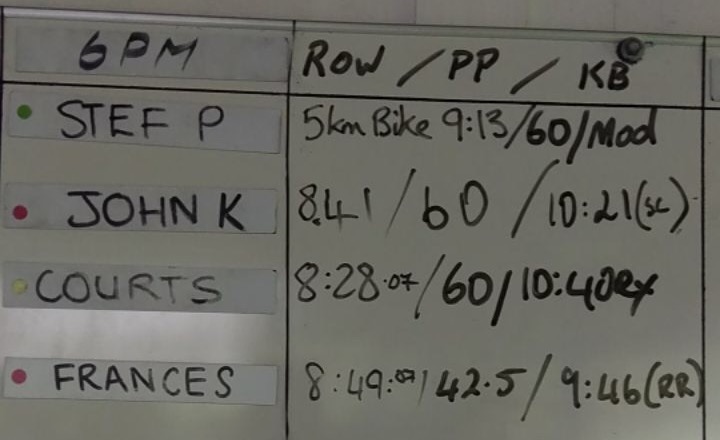 6PM ROW / PP / KB
STEF P 5km Bike 9:13/60/Mod
JOHN K 8.41 / 60 / 10:21(sc)
COURTS 8:28.07/60/10:40Rx
FRANCES 8:49:07/42.5/9:46(RR)